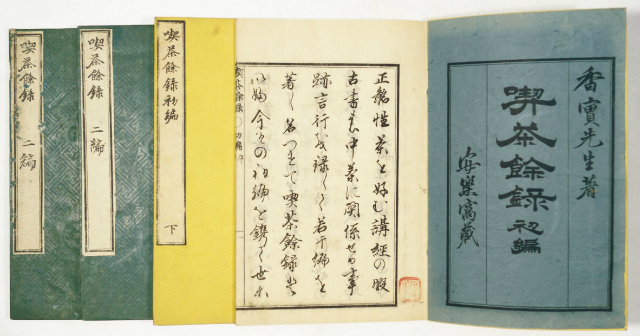 香實先生著
喫茶餘録初編
安樂窩藏
正銘性茶を好む講經の暇
古書の中茶に関係せる事
跡言行を録して若干編を
著し名つけて喫茶餘録と
いふ今その初編を鐫し世に
喫茶餘録
喫茶餘録初編
下
喫茶餘録 二編
喫茶餘録 二編